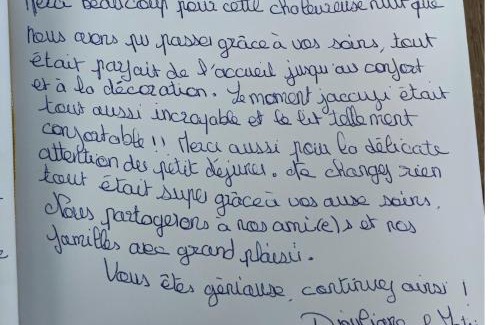 Merci beaucoup pour cette chaleureuse nuit que
nous avons pu passer grâce à vos soins, tout
était parfait de l'accueil jusqu'au confort
et à la décoration. Le moment jaccuzi était
tout aussi incroyable et le lit tellement
confortable !! Merci aussi pour la délicate
attention du petit dejuner. Ne changez rien
tout était super grâce à vos ause soins.
Nous partagerons à nos ami(e)s et nos
familles avec grand plaisir.
Vous êtes géniause, continuez ainsi !